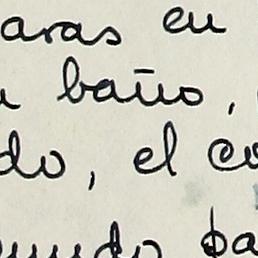 aras en
baño,
do, el co
mundo pa